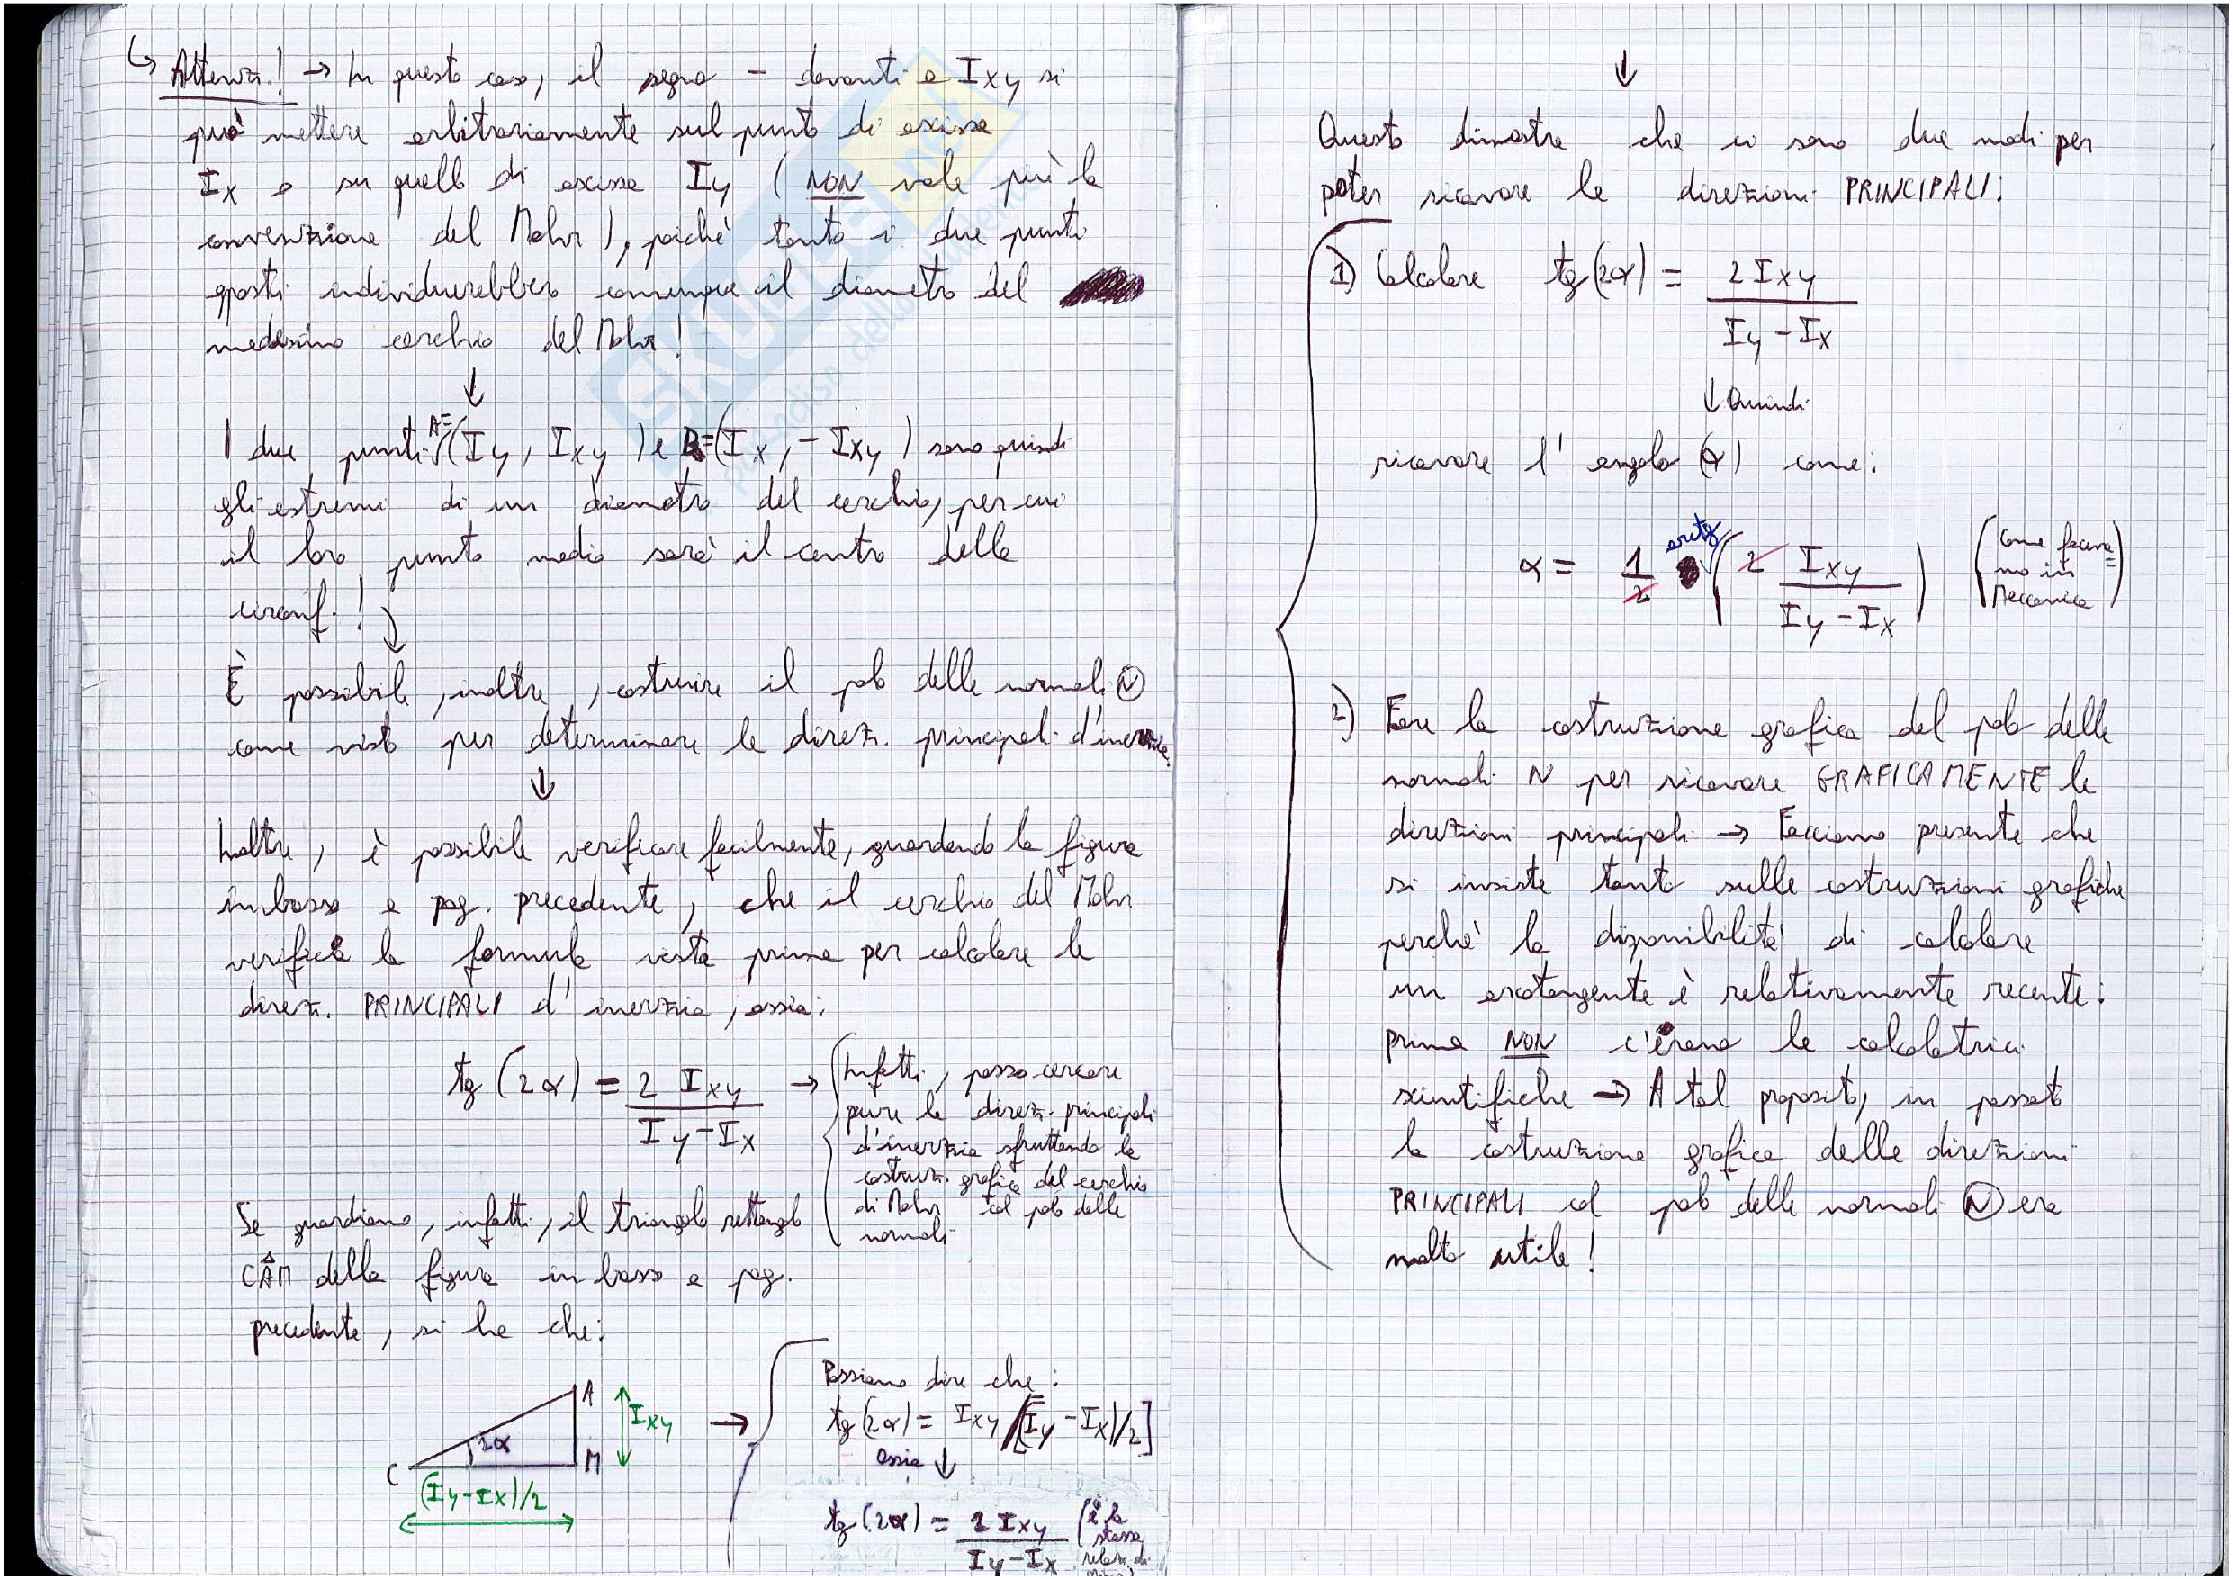 ↳ Attenz.! → In questo caso, il segno - davanti a Ixy si
può mettere arbitrariamente sul punto di ascissa
Ix o su quello di ascissa Iy (NON vale più la
convenzione del Mohr), poichè tanto i due punti
opposti individuerebbero comunque il diametro del
medesimo cerchio del Mohr!
↓
I due punti A=(Iy, Ixy) e B=(Ix, -Ixy) sono quindi
gli estremi di un diametro del cerchio, per cui
il loro punto medio sarà il centro della
circonf.!
È possibile, inoltre, costruire il polo delle normali N
come visto per determinare le direz. principali d'inerzia.
↓
Inoltre, è possibile verificare facilmente, guardando la figura
in basso a pag. precedente, che il cerchio del Mohr
verifica la formula vista prima per calcolare le
direz. PRINCIPALI d'inerzia, ossia:
tg (2α) = 2 Ixy / Iy-Ix →
Infatti, posso cercare
pure le direz. principali
d'inerzia sfruttando la
costruz. grafica del cerchio
di Mohr col polo delle
normali
Se guardiamo, infatti, il triangolo rettangolo
CÂM della figura in basso a pag.
precedente, si ha che:
A
Ixy
2α
C
M
(Iy-Ix)/2
→
Possiamo dire che:
tg(2α) = Ixy/[(Iy-Ix)/2]
ossia ↓
tg(2α) = 2 Ixy / Iy-Ix
(è la
stessa
relaz. di
↓
Questo dimostra che ci sono due modi per
poter ricavare le direzioni PRINCIPALI:
1) Calcolare tg(2α) = 2 Ixy / Iy - Ix
↓ Quindi
ricavare l'angolo (α) come:
α = 1/2 arctg (2 Ixy / Iy - Ix)
(Come faceva=
mo in
Meccanica)
2) Fare la costruzione grafica del polo delle
normali N per ricavare GRAFICAMENTE le
direzioni principali → Facciamo presente che
si insiste tanto sulle costruzioni grafiche
perchè la disponibilità di calcolare
un arcotangente è relativamente recente:
prima NON c'erano le calcolatrici
scientifiche → A tal proposito, in passato
la costruzione grafica delle direzioni
PRINCIPALI col polo delle normali N era
molto utile!